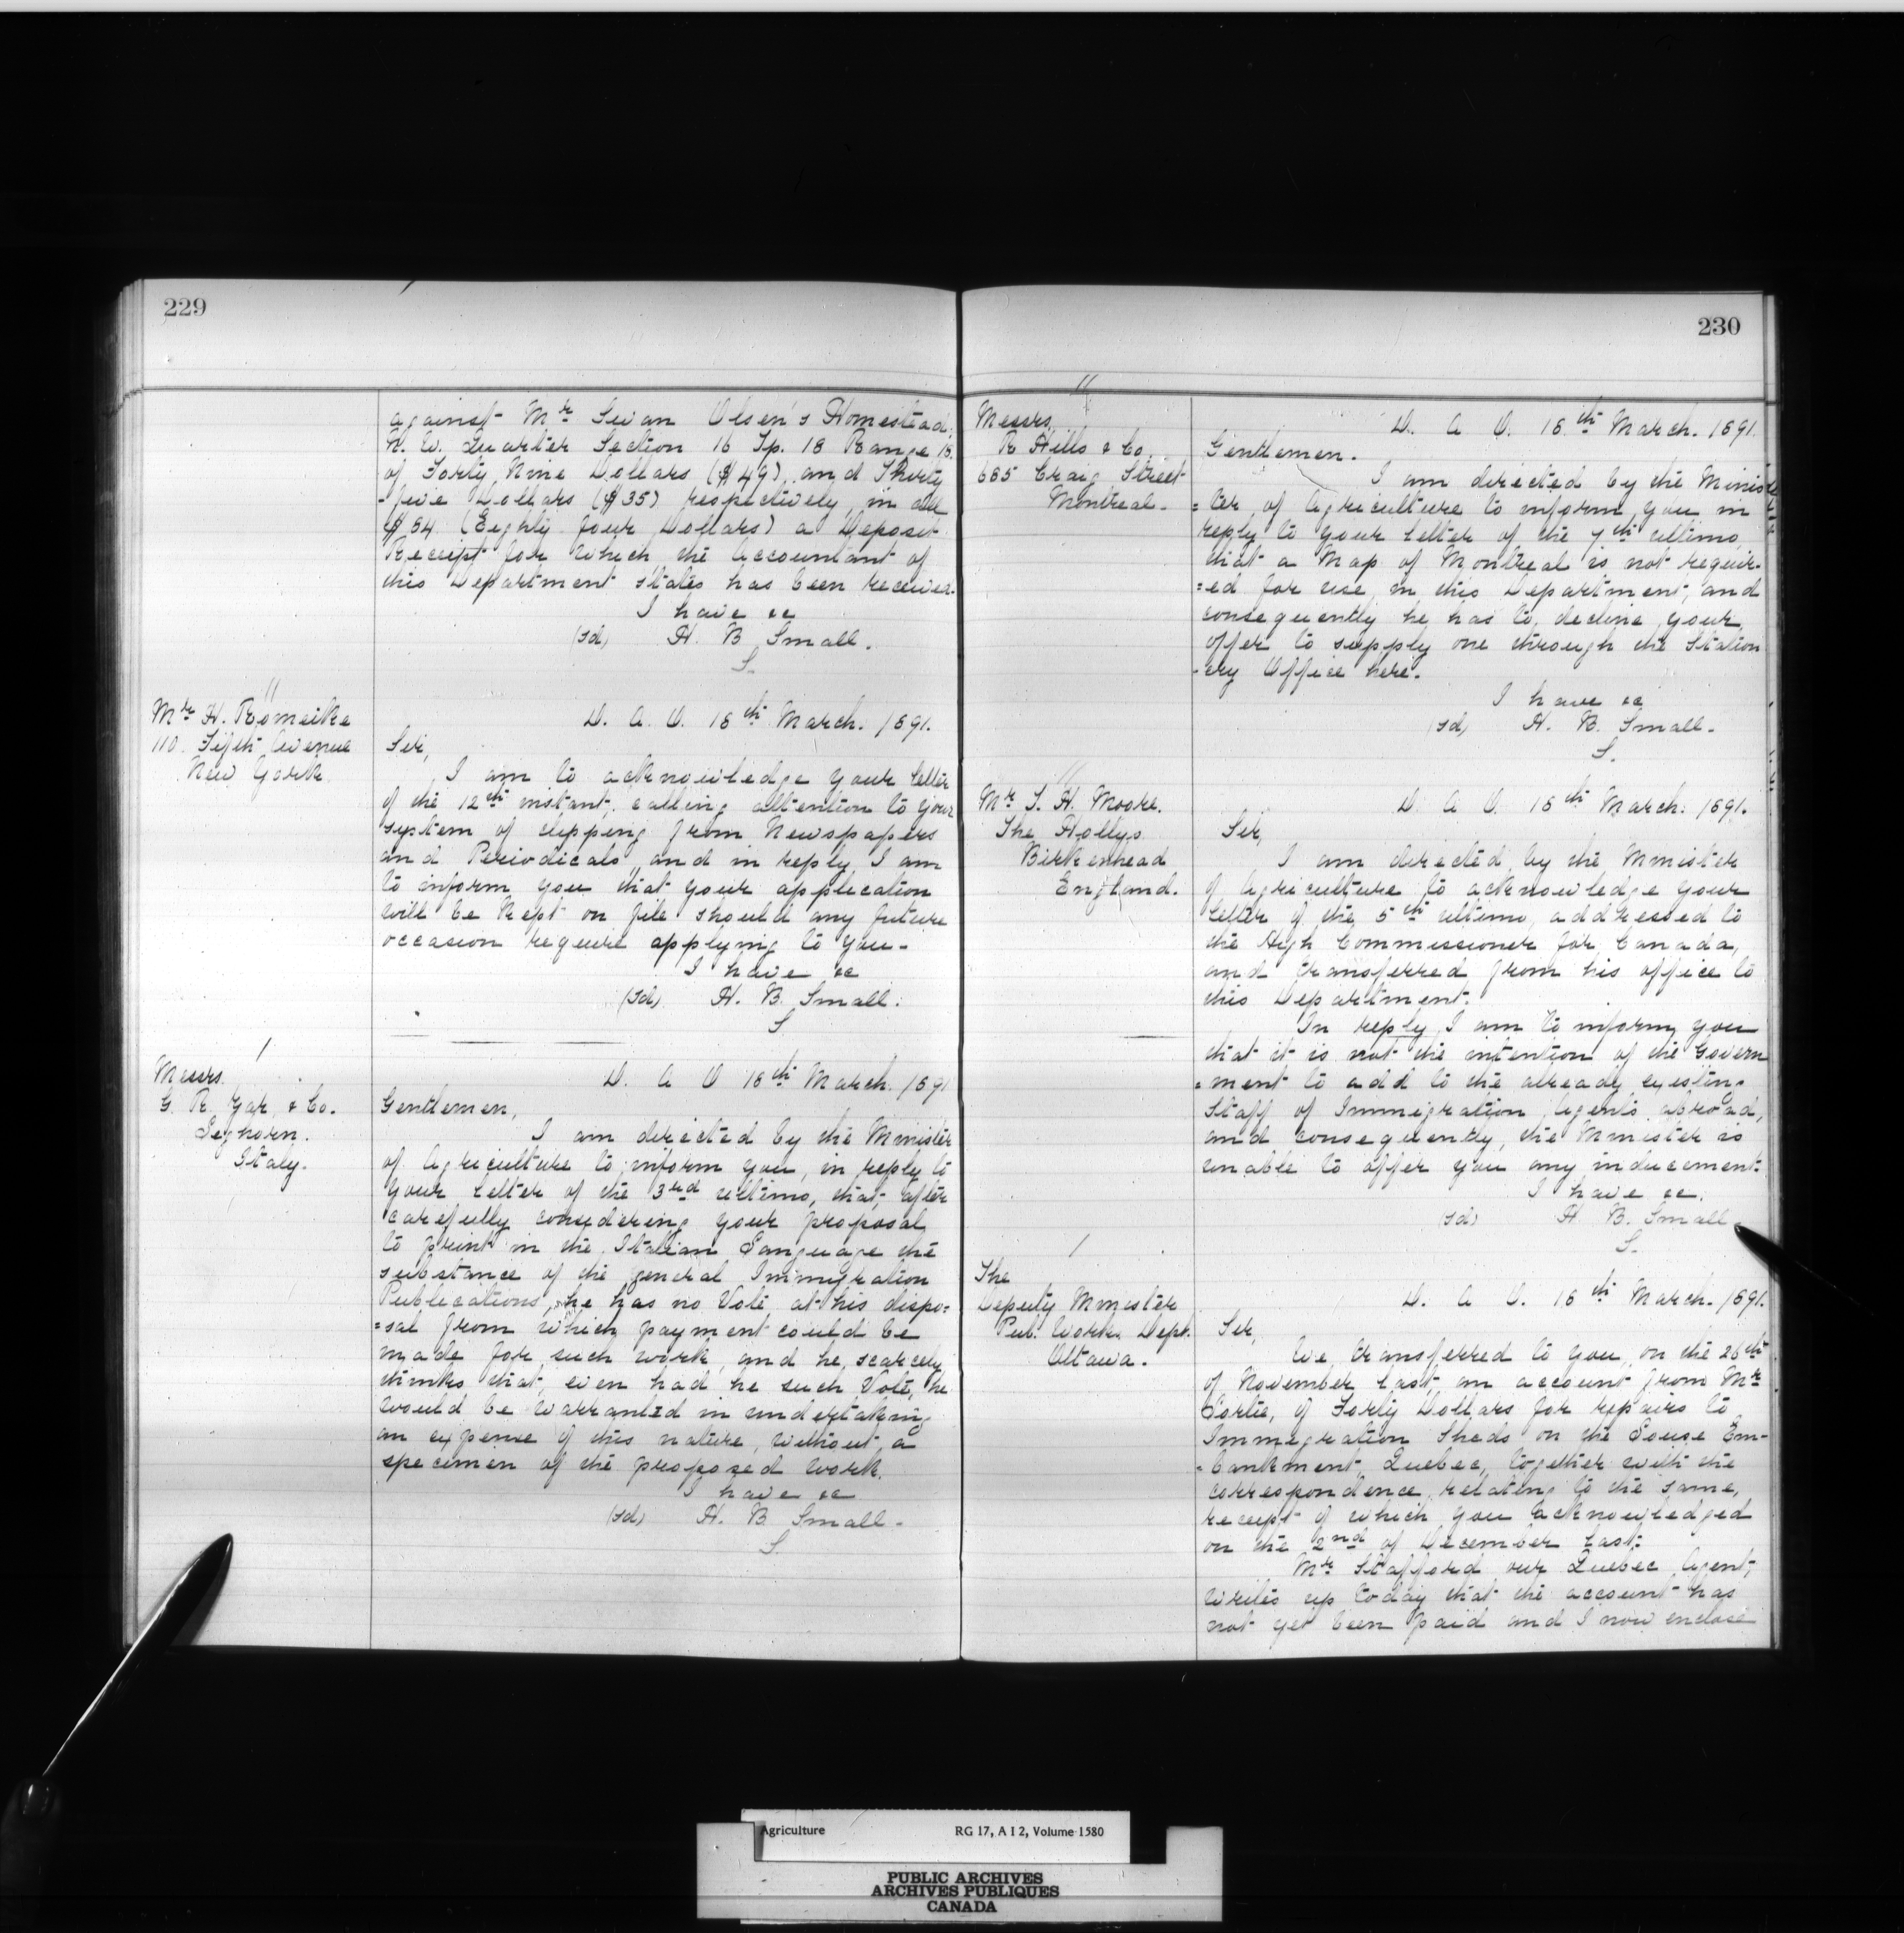 229
against Mr Swan Olsen's Homestead.
N. W. Quarter Section 16 Tp. 18 Range
of Forty Nine Dollars ($49) and Thirty
-five Dollars ($35) respectively, in all
$84 (Eighty four Dollars) a Deposit
Receipt for which the Accountant of
this Department states has been received.
I have &c
(sd) H. B. Small.
S.
"
Mr H. Romeike
110. Fifth Avenue
New York.
D. A. O. 16th March. 1891.
Sir,
I am to acknowledge your letter
of the 12th instant, calling attention to your
system of clipping from Newspapers
and Periodicals, and in reply, I am
to inform you that your application
will be kept on file should any future
occasion require applying to you-
I have &c
(sd) H. B. Small.
S
/
Messrs.
G. R. & Co.
Leghorn.
Italy.
D. A O 16th March. 1891
Gentlemen,
I am directed by the Minister
of Agriculture to inform you, in reply to
your letter of the 3rd ultimo, that, after
carefully considering your proposal
to print in the Italian Language the
substance of the general Immigration
Publications, he has no Vote at his dispo=
=sal from which payment could be
made for such work, and he scarcely
thinks that, even had he such Vote, he
would be warranted in undertaking
an expense of this nature, without a
specimen of the proposed work.
I have &c
(sd) H. B. Small-
S.
230
"
Messrs.
R Hills & Co.
665 Craig Street
Montreal-
D. A O. 16th March. 1891.
Gentlemen.
I am directed by the Minis
=ter, of Agriculture to inform you in
reply to your letter of the 7th ultimo
that a Map of Montreal is not requir-
=ed for use in this Department, and
consequently he has to decline your
offer to supply one through the Station
-ery Office here.
I have &c
(sd) H. B. Small-
S.
"
Mr S. H. Moore.
The Hollys.
Birkenhead
England.
D. A O 16th March. 1891.
Sir,
I am directed by the Minister
of Agriculture to acknowledge your
letter of the 5th ultimo, addressed to
the High Commissioner for Canada,
and transferred from his office to
this Department.
In reply, I am to inform you
that it is not the intention of the Govern
=ment to add to the already existing
Staff of Immigration Agents abroad,
and consequently, the Minister is
unable to offer you any inducement.
I have &c.
(sd) H. B. Small.
S.
/
The
Deputy Minister
Pub. Works Dept.
Ottawa.
D. A O. 16th March. 1891.
Sir,
We transferred to you, on the 26th
of November last, an account from Mr
of Forty Dollars for repairs to
Immigration Sheds on the Louise Em-
=bankment, Quebec, together with the
correspondence relating to the same,
receipt of which you acknowledged
on the 2nd of December last.
Mr Stafford our Quebec Agent,
writes up today that the account has
not yet been paid and I now enclose
Agriculture RG 17, A I 2, Volume 1580
PUBLIC ARCHIVES
ARCHIVES PUBLIQUES
CANADA